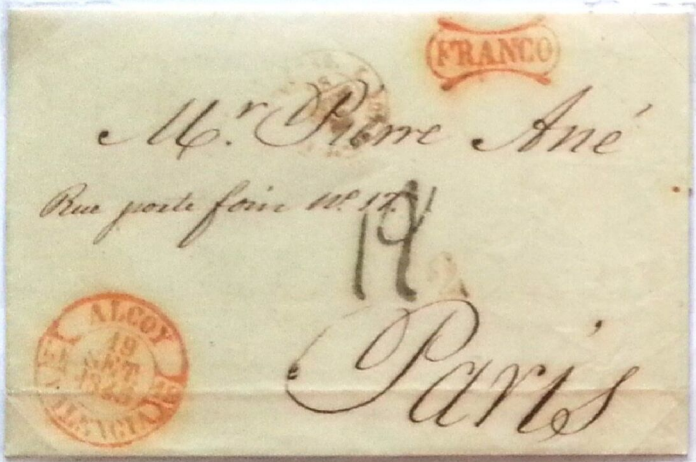 FRANCO
Mr. Pierre Ané
Rue porte foin No. 17.
19
Paris
ALCOY
19
SET.
VALENCIA